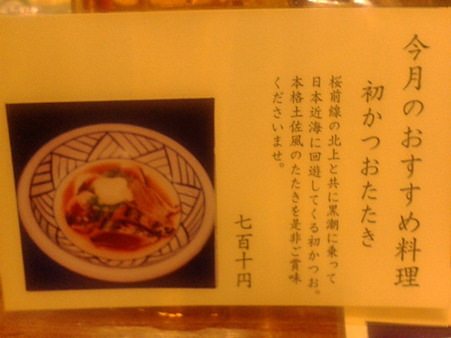 今月のおすすめ料理
初かつおたたき
桜前線の北上と共に黒潮に乗って
日本近海に回遊してくる初かつお。
本格土佐風のたたきを是非ご賞味
くださいませ。
七百十円